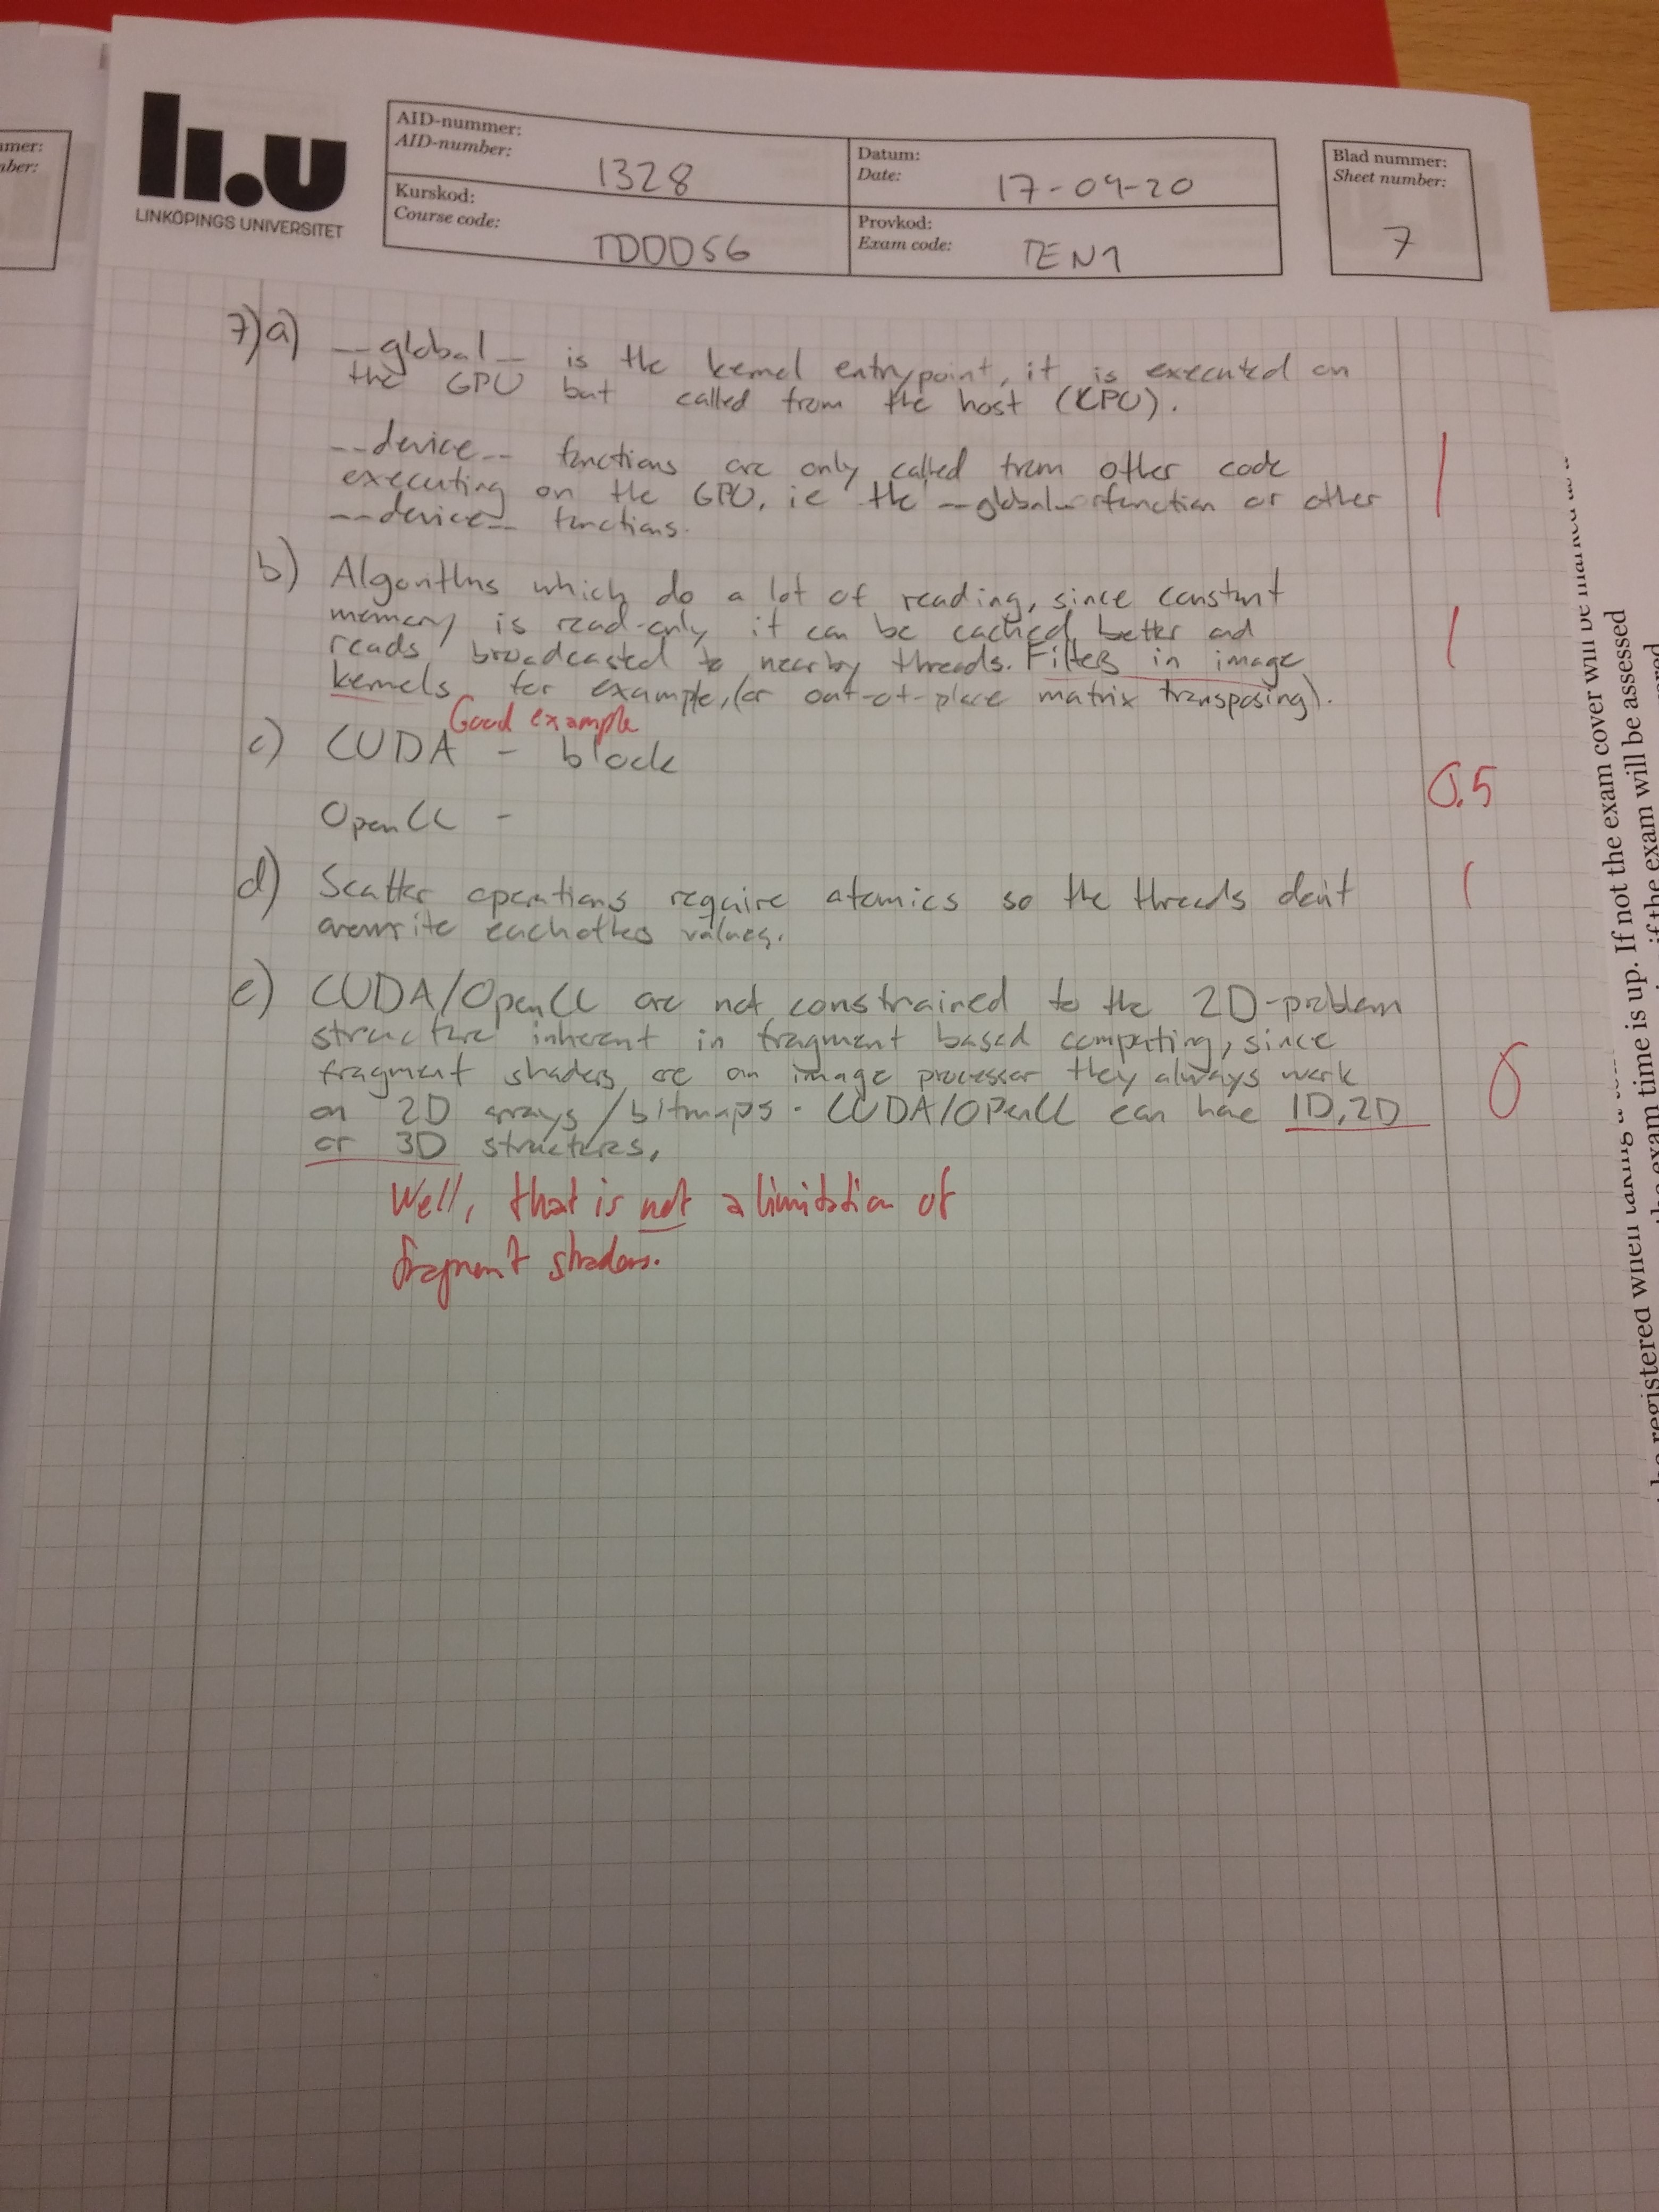 li.u
LINKÖPINGS UNIVERSITET
AID-nummer:
AID-number:
1328
Datum:
Date:
17-04-20
Kurskod:
Course code:
TDDD56
Provkod:
Exam code:
TEN1
Blad nummer:
Sheet number:
7
7)a) __global__ is the kernel entrypoint, it is executed on
the GPU but called from the host (CPU).
__device__ functions are only called from other code
executing on the GPU, ie the __global__ function or other
__device__ functions.
1
b) Algorithms which do a lot of reading, since constant
memory is read-only it can be cached better and
reads broadcasted to nearby threads. Filters in image
kernels for example, (or out-of-place matrix transposing).
1
Good example
c) CUDA - block
OpenCL -
0.5
d) Scatter operations require atomics so the threads don't
overwrite eachothers values.
1
e) CUDA/OpenCL are not constrained to the 2D-problem
structure inherent in fragment based computing, since
fragment shaders are an image processor they always work
on 2D arrays/bitmaps. CUDA/OpenCL can have 1D, 2D
or 3D structures.
0
Well, that is not a limitation of
fragment shaders.
If not the exam cover will be marked as a
exam time is up.
if the exam will be assessed
registered when taking a